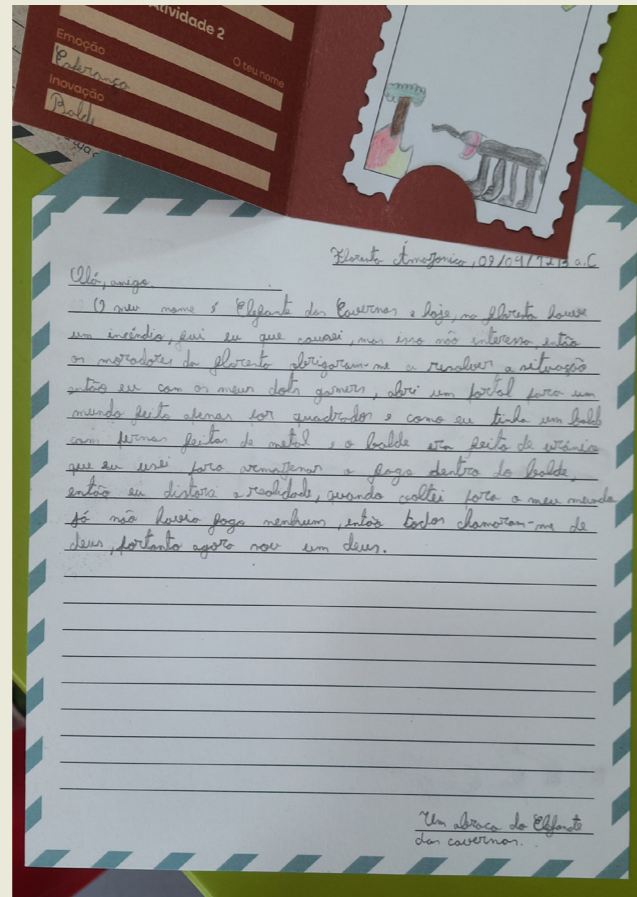 Atividade 2
Emoção
O teu nome
Esperança
Inovação
Bald
Floresta Ámazonica, 08/09/1213 a.C
Olá, amigo.
O meu nome é Elefante das Cavernas e hoje, na floresta houve
um incêndio, fui eu que causei, mas isso não interessa, então
os moradores da floresta obrigaram-me a resolver a situação
então eu com os meus dots gamers, abri um portal para um
mundo feito apenas por quadrados e como eu tinha um balde
com pernas feitas de metal e o balde era feito de urânio
que eu usei para armazenar o fogo dentro do balde,
então eu distorci a realidade, quando voltei para o meu mundo
já não havia fogo nenhum, então todos chamaram-me de
deus, portanto agora sou um deus.
Um abraço do Elefante
das cavernas.